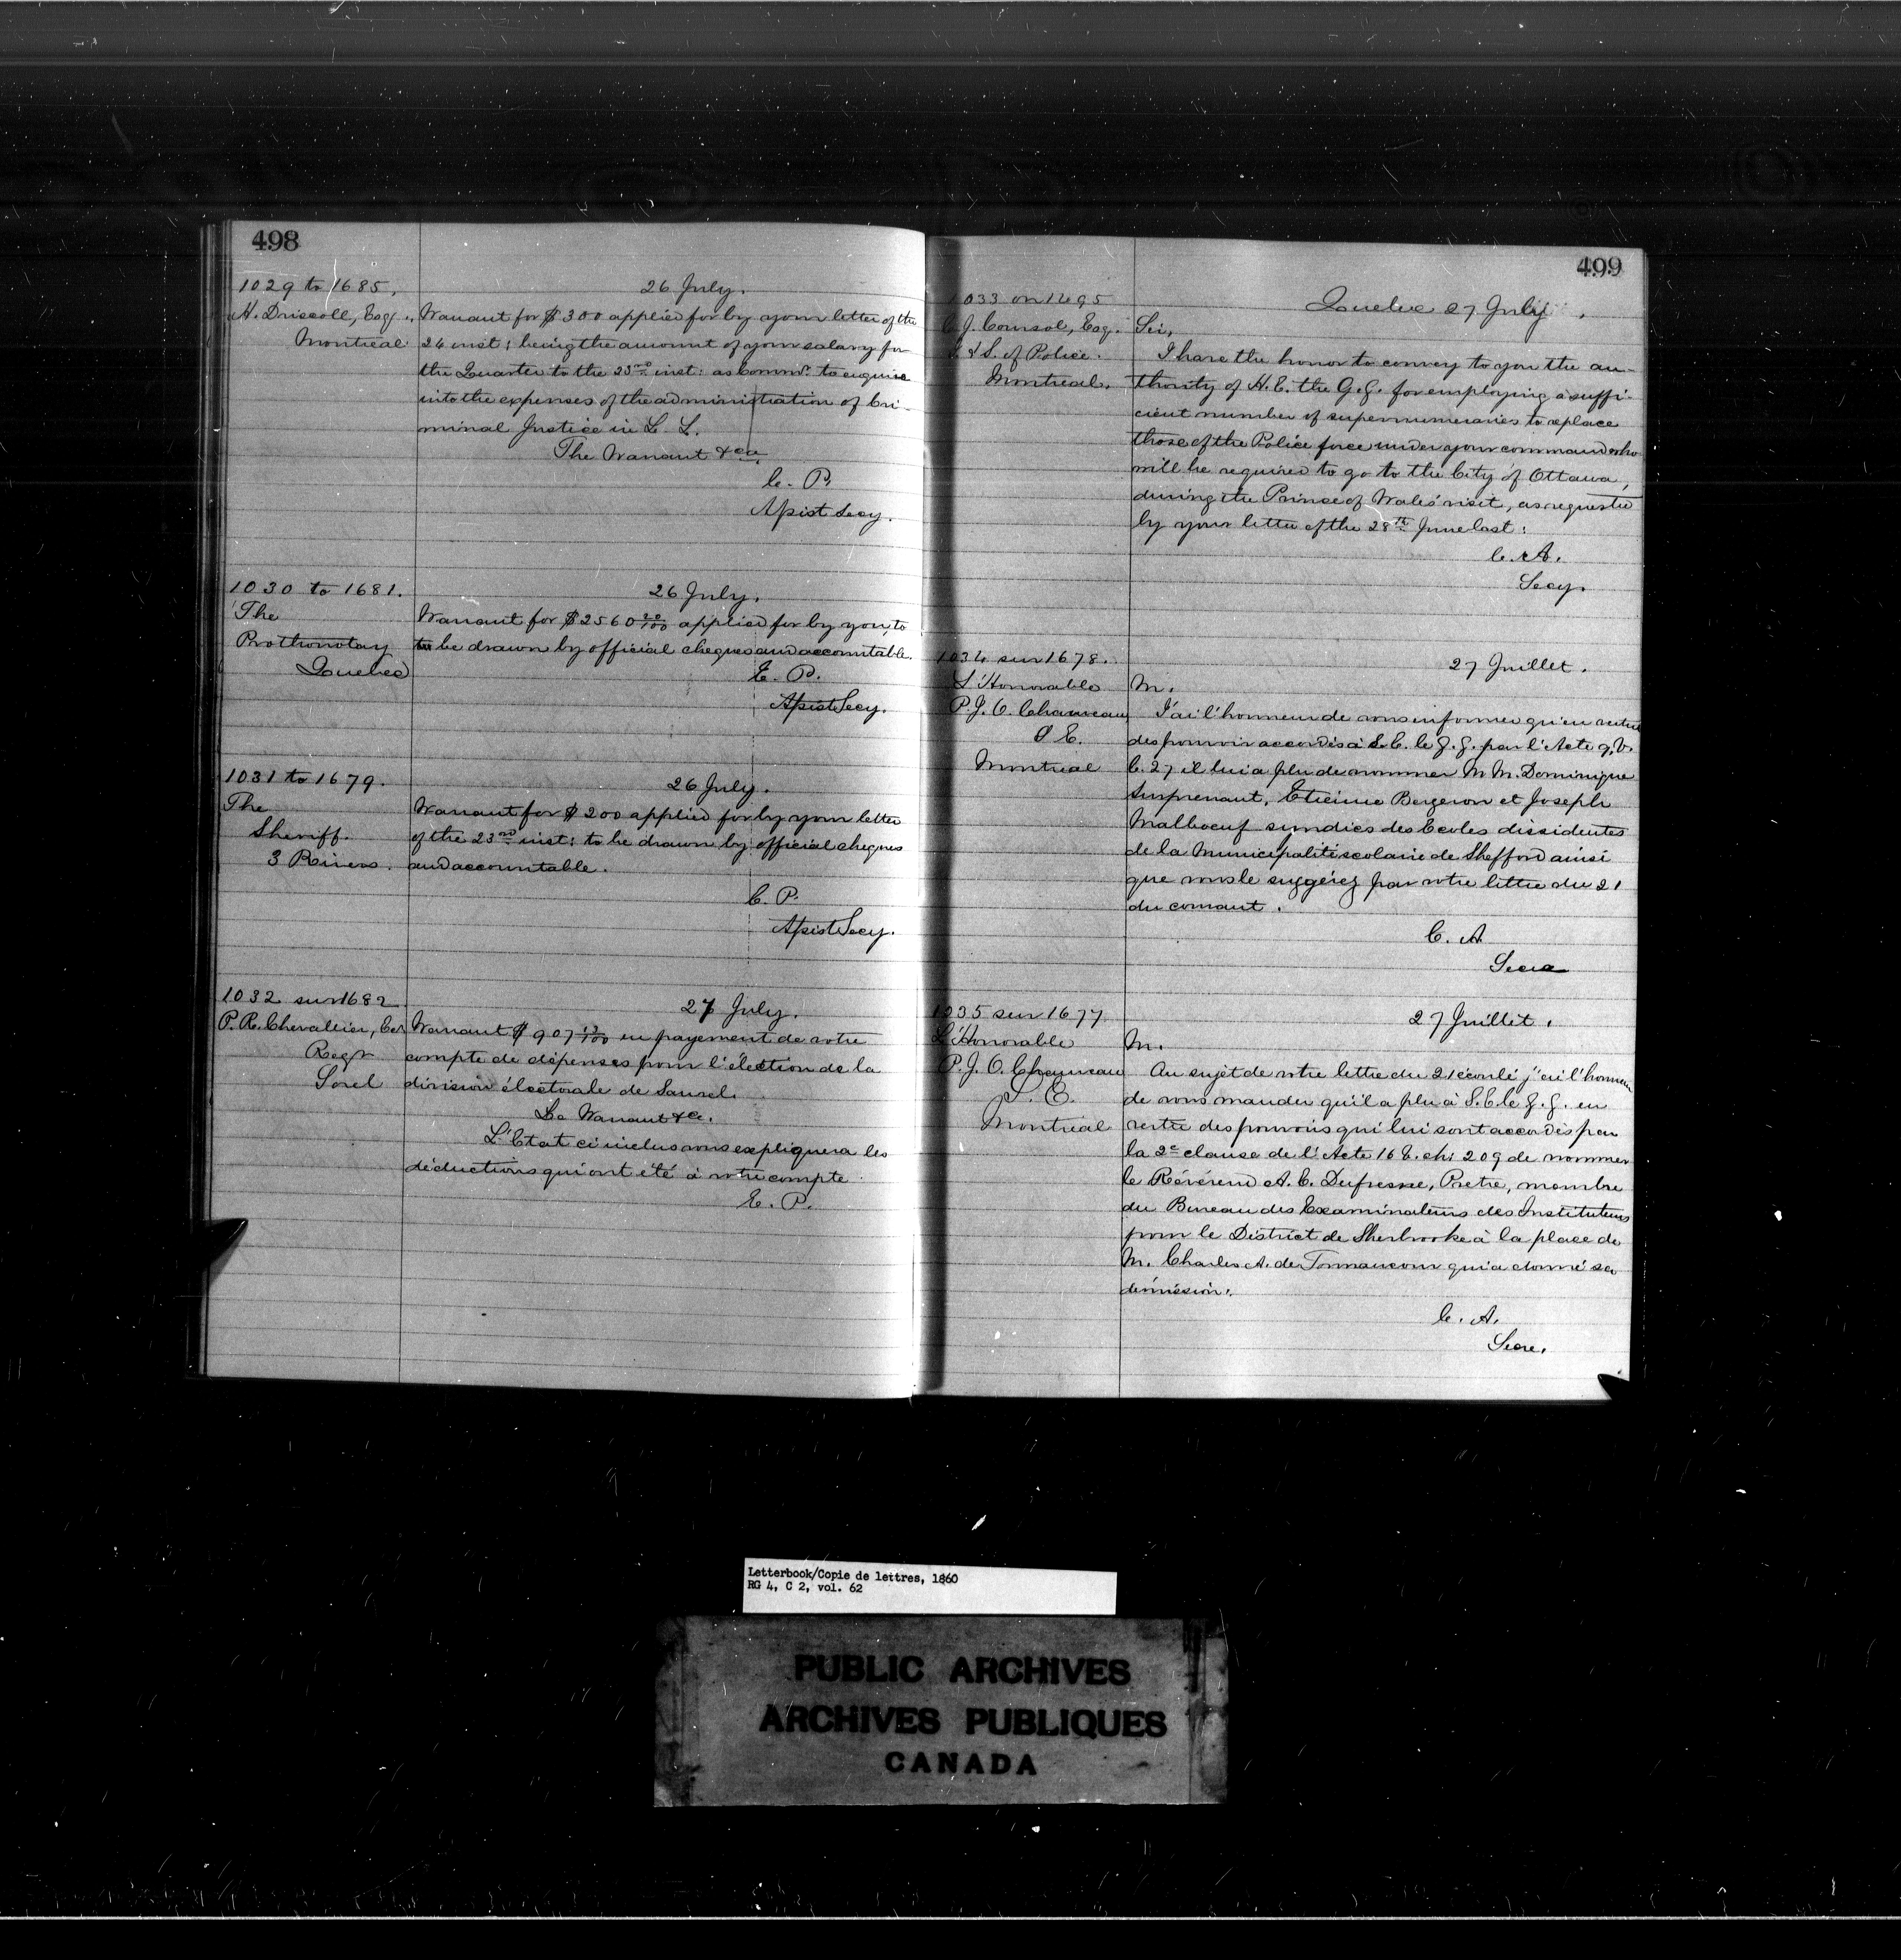 498
1029 to 1685.
A. Driscoll, Esq.,
Montreal
26 July.
Warrant for $300 applied for by your letter of the
24 inst: being the amount of your salary for
the Quarter to the 23rd inst: as Commr. to enquire
into the expenses of the administration of Cri-
minal Justice in L. C.
The Warrant &ca.
E. P.
Assist Secy.
1030 to 1681.
The
Prothonotary
Quebec
26 July.
Warrant for $2560 20/100 applied for by you, to
be drawn by official cheques and accountable.
E. P.
Assist Secy.
1031 to 1679.
The
Sheriff.
3 Rivers.
26 July.
Warrant for $200 applied for by your letter
of the 23rd inst: to be drawn by official cheques
and accountable.
E. P.
Assist Secy.
1032 sur 1682
P. R. Chevallier, Ecr
Regr
Sorel
27 July.
Warrant $907 13/100 en payement de votre
compte de dépenses pour l'élection de la
division électorale de Saurel.
Le Warrant &c.
L'Etat ci inclus vous expliquera les
déductions qui ont été à votre compte
E. P.
499
1033 on 1495
C. J. Coursol, Esq.
I & S. of Police.
Montreal.
Quebec 27 July.
Sir,
I have the honor to convey to you the au-
thority of H. E. the G. G. for employing a suffi-
cient number of supernumeraries to replace
those of the Police force under your command who
will be required to go to the City of Ottawa,
during the Prince of Wales' visit, as requested
by your letter of the 28th June last:
C. A.
Secy.
1034 sur 1678.
L'Honorable
P. J. O. Chauveau
S E.
Montreal
27 Juillet.
M.
J'ai l'honneur de vous informer qu'en vertu
des pouvoir accordés à S. E. le G. G. par l'Acte 9. V.
C. 27 il lui a plu de nommer M M. Dominique
Surprenant, Etienne Bergeron et Joseph
Malboeuf syndics des Ecoles dissidentes
de la Municipalité scolaire de Shefford ainsi
que vous le suggérez par votre lettre du 21
du courant.
C. A
Secre
1035 sur 1677
L'Honorable
P. J. O. Chauveau
S. E.
Montreal
27 Juillet.
M.
Au sujet de votre lettre du 21 écoulé j'ai l'honneur
de vous mander qu'il a plu à S. E. le G. G. en
vertu des pouvoirs qui lui sont accordés par
la 2e clause de l'Acte 16 V. ch: 209 de nommer
le Révérend A. E. Dufresne, Pretre, membre
du Bureau des Examinateurs des Instituteurs
pour le District de Sherbrooke à la place de
M. Charles A. de Tonnancour qui a donné sa
démission.
C. A.
Secre.
Letterbook/Copie de lettres, 1860
RG 4, C 2, vol. 62
PUBLIC ARCHIVES
ARCHIVES PUBLIQUES
CANADA